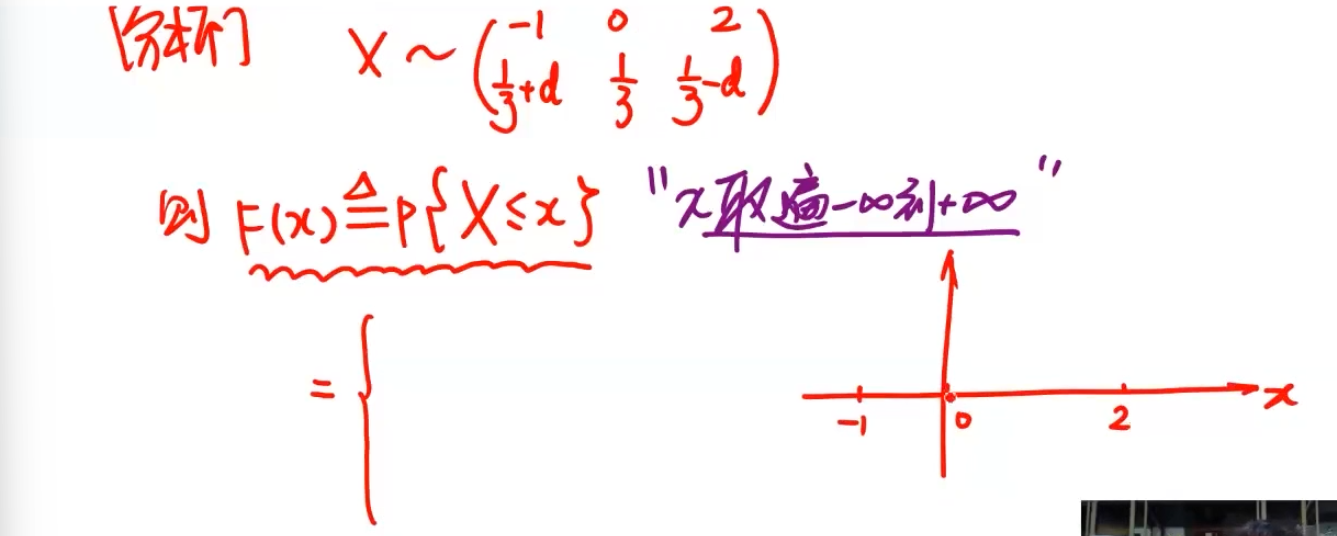 [分析] X ~ ( -1 0 2
1/3+d 1/3 1/3-d )
则 F(x) ≜ P{X≤x} "x取遍-∞到+∞"
= {
-1 0 2 x